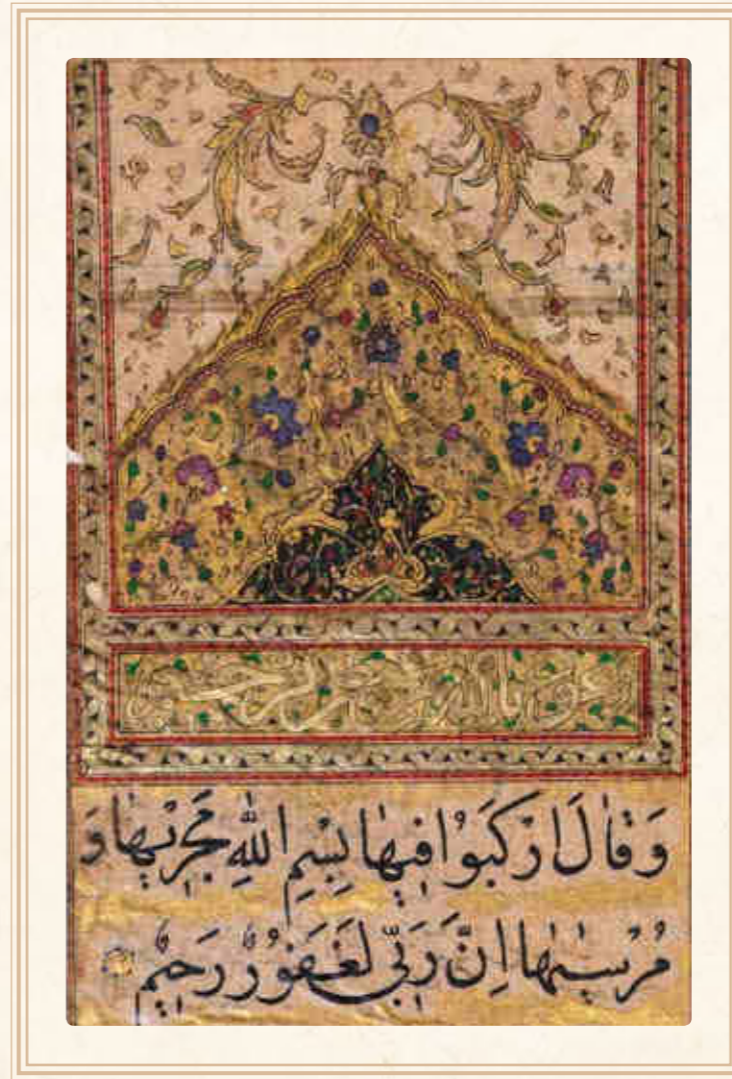 وَقَالَ ارْكَبُوا فٖيهَا بِسْمِ اللّٰهِ مَجْرٰىهَا وَ
مُرْسٰيهَا اِنَّ رَبّٖي لَغَفُورٌ رَحٖيمٌ